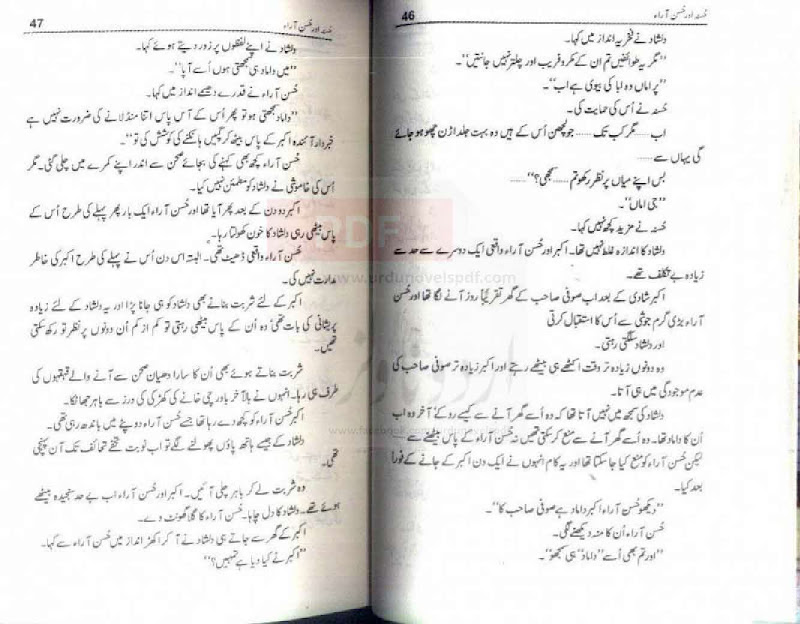 46
حُسنہ اور حُسن آراء
دلشاد نے فخریہ انداز میں کہا۔
”مگر یہ طوائفیں تم ان کے مکر و فریب اور چلتر نہیں جانتیں“۔
”پر اماں وہ ابا کی بیوی ہے اب“۔
حُسنہ نے اُس کی حمایت کی۔
اب ...... مگر کب تک ...... جو لچھن اُس کے ہیں وہ بہت جلد اڑن چھو ہو جائے
گی یہاں سے ......
بس اپنے میاں پر نظر رکھو تم ...... سمجھی؟“......
”جی اماں“۔
حُسنہ نے مزید کچھ نہیں کہا۔
دلشاد کا اندازہ غلط نہیں تھا۔ اکبر اور حُسن آراء واقعی ایک دوسرے سے حد سے
زیادہ بے تکلف تھے۔
اکبر شادی کے بعد اب صوفی صاحب کے گھر تقریباً روز آنے لگا تھا اور حُسن
آراء بڑی گرم جوشی سے اُس کا استقبال کرتی
اور دلشاد سلگتی رہتی۔
وہ دونوں زیادہ تر وقت اکٹھے ہی بیٹھے رہتے اور اکبر زیادہ تر صوفی صاحب کی
عدم موجودگی میں ہی آتا۔
دلشاد کی سمجھ میں نہیں آتا تھا کہ وہ اُسے گھر آنے سے کیسے روکے آخر وہ اب
اُن کا داماد تھا۔ وہ اُسے گھر آنے سے منع کر سکتی تھیں نہ حُسن آراء کے پاس بیٹھنے سے —
لیکن حُسن آراء کو منع کیا جا سکتا تھا اور یہ کام انہوں نے ایک دن اکبر کے جانے کے فوراً
بعد کیا۔
”دیکھو حُسن آراء اکبر داماد ہے صوفی صاحب کا“۔
حُسن آراء اُن کا منہ دیکھنے لگی۔
”اور تم بھی اُسے ”داماد“ ہی سمجھو“۔
47
حُسنہ اور حُسن آراء
دلشاد نے اپنے لفظوں پر زور دیتے ہوئے کہا۔
”میں داماد ہی سمجھتی ہوں اُسے آپا“۔
حُسن آراء نے قدرے دھیمے انداز میں کہا۔
”داماد سمجھتی ہو تو پھر اُس کے آس پاس اتنا منڈلانے کی ضرورت نہیں ہے
خبردار آئندہ اکبر کے پاس بیٹھ کر گپیں ہانکنے کی کوشش کی تو“۔
حُسن آراء کچھ بھی کہنے کی بجائے صحن سے اندر اپنے کمرے میں چلی گئی۔ مگر
اُس کی خاموشی نے دلشاد کو مطمئن نہیں کیا۔
اکبر دو دن کے بعد پھر آیا تھا اور حُسن آراء ایک بار پھر پہلے کی طرح اُس کے
پاس بیٹھی رہی دلشاد کا خون کھولتا رہا۔
حُسن آراء واقعی ڈھیٹ تھی۔ البتہ اس دن اُس نے پہلے کی طرح اکبر کی خاطر
مدارت نہیں کی۔
اکبر کے لئے شربت بنانے بھی دلشاد کو ہی جانا پڑا اور یہ دلشاد کے لئے زیادہ
پریشانی کی بات تھی‘ وہ اُن کے پاس بیٹھی رہتی تو کم از کم اُن دونوں پر نظر تو رکھ سکتی
تھیں۔
شربت بناتے ہوئے بھی اُن کا سارا دھیان صحن سے آنے والے قہقہوں کی
طرف ہی رہا۔ انہوں نے بالآخر باورچی خانے کی کھڑکی کی درز سے باہر جھانکا۔
اکبر حُسن آراء کو کچھ دے رہا تھا جسے حُسن آراء دوپٹے میں باندھ رہی تھی۔
دلشاد کے جیسے ہاتھ پاؤں پھولنے لگے تو اب نوبت تحفے تحائف تک آن پہنچی
تھی۔
وہ شربت لے کر باہر چلی آئیں۔ اکبر اور حُسن آراء اب بے حد سنجیدہ بیٹھے
ہوئے تھے۔ دلشاد کا دل چاہا۔ حُسن آراء کا گلا گھونٹ دے۔
اکبر کے گھر سے جاتے ہی دلشاد نے آ کر اکھڑ انداز میں حُسن آراء سے کہا۔
”اکبر نے کیا دیا ہے تمہیں؟“
PDF
www.urdunovelspdf.com
اردو ناولز